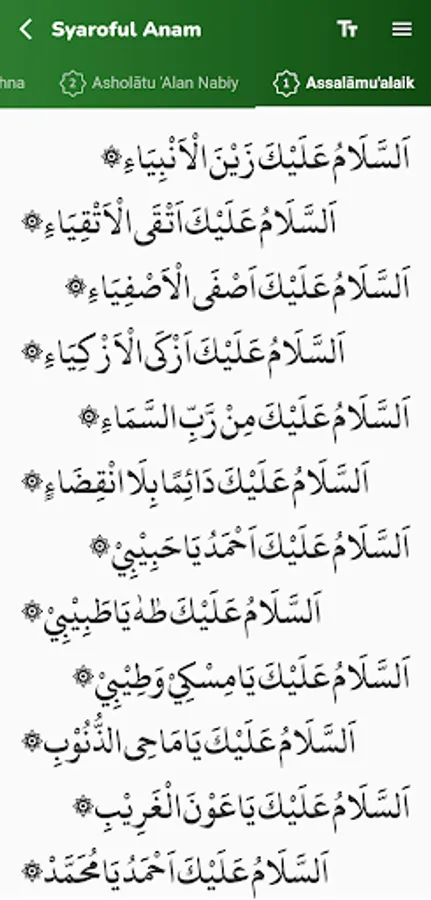 Syaroful Anam
hna
2 Asholātu 'Alan Nabiy
1 Assalāmu'alaik
اَلسَّلَامُ عَلَيْكَ زَيْنَ الْاَنْبِيَاءِ ۞
اَلسَّلَامُ عَلَيْكَ اَتْقَى الْاَتْقِيَاءِ ۞
اَلسَّلَامُ عَلَيْكَ اَصْفَى الْاَصْفِيَاءِ ۞
اَلسَّلَامُ عَلَيْكَ اَزْكَى الْاَزْكِيَاءِ ۞
اَلسَّلَامُ عَلَيْكَ مِنْ رَّبِّ السَّمَاءِ ۞
اَلسَّلَامُ عَلَيْكَ دَائِمًا بِلَا انْقِضَاءٍ ۞
اَلسَّلَامُ عَلَيْكَ اَحْمَدُ يَا حَبِيْبِيْ ۞
اَلسَّلَامُ عَلَيْكَ طٰهٰ يَا طَبِيْبِيْ ۞
اَلسَّلَامُ عَلَيْكَ يَا مِسْكِيْ وَطِيْبِيْ ۞
اَلسَّلَامُ عَلَيْكَ يَا مَاحِى الذُّنُوْبِ ۞
اَلسَّلَامُ عَلَيْكَ يَا عَوْنَ الْغَرِيْبِ ۞
اَلسَّلَامُ عَلَيْكَ اَحْمَدُ يَا مُحَمَّدْ ۞